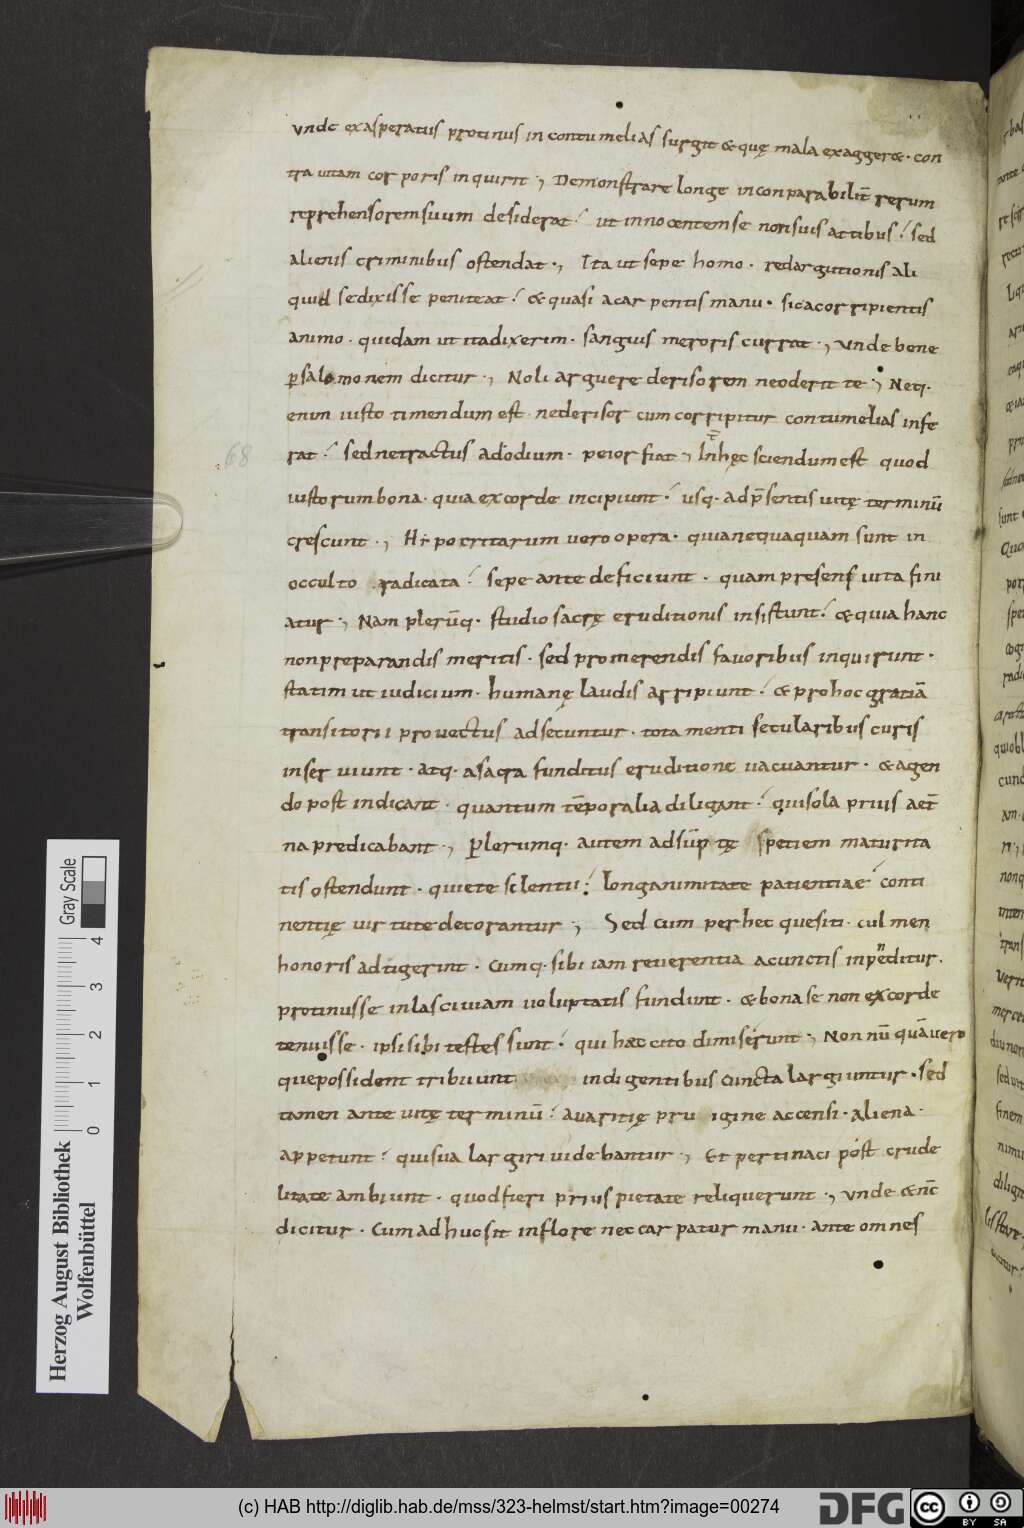 unde exasperatus protinus in contumelias surgit & quę mala exagger&. con
tra uitam corporis inquirit ., Demonstrare longe inconparabilit̄ rerum
reprehensorem suum desiderat. ut innocentem se non suis actibus. sed
alienis criminibus ostendat ., Ita ut sepe homo. redargutionis ali
quid se dixisse peniteat. & quasi a carpentis manu. sic a corripientis
animo. quidam ut ita dixerim. sanguis meroris currat ., unde bene
ꝑ salomonem dicitur., Noli arguere derisorem ne oderit te ., Neq.
enim iusto timendum est. ne derisor cum corripitur contumelias infe
rat. sed ne tractus ad odium. peior fiat ., In hęc sciendum est quod
iustorum bona. quia ex corde incipiunt. usq. ad p̄sentis uitę terminū
crescunt ., Hipocritarum uero opera. quia nequaquam sunt in
occulto radicata. sepe ante deficiunt. quam presens uita fini
atur., Nam plerūq. studio sacrę eruditionis insistunt. & quia hanc
non preparandis meritis. sed promerendis favoribus inquirunt.
statim ut iudicium. humanę laudis arripiunt. & pro hoc gratiā
transitorii prouectus adsecuntur. tota menti secularibus curis
inseruiunt. atq. a sacra funditus eruditione uacuantur. & agen
do post indicant. quantum tēporalia diligant. qui sola prius aet̄
na predicabant., Plerumq. autem adsūptę spetiem maturita
tis ostendunt. quiete silentii. longanimitate patientiae conti
nentię uirtute decorantur., Sed cum per hec quesiti. culmen
honoris adtigerint. Cumq. sibi iam reuerentia a cunctis inpenditur.
protinus se in lasciuiam uoluptatis fundunt. & bona se non ex corde
tenuisse. ipsi sibi testes sunt. qui haec cito dimiserunt ., Non nū quā uero
que possident tribuunt indigentibus cuncta largiuntur. sed
tamen ante uitę terminū. auaritię pru igine accensi. aliena.
appetunt. qui sua largiri uidebantur., Et pertinaci post crude
litate ambiunt. quod fieri prius pietate reliquerunt., unde & n̄c
dicitur. Cum adhuc sit in flore nec carpatur manu. ante omnes
68
Herzog August Bibliothek
Wolfenbüttel
Gray Scale
0 1 2 3 4
(c) HAB http://diglib.hab.de/mss/323-helmst/start.htm?image=00274
DFG
cc BY SA